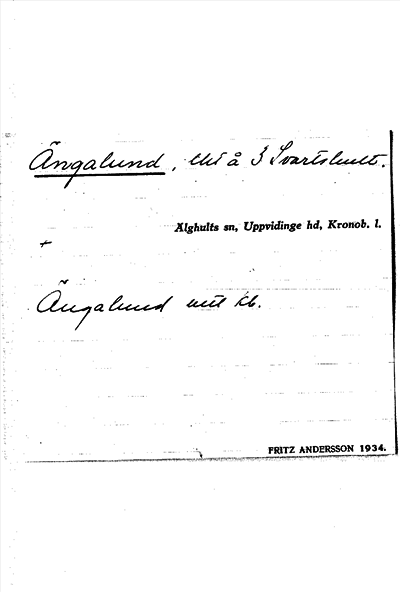 Ängalund, lht å 3 Svartshult.
Älghults sn, Uppvidinge hd, Kronob. l.
+
Ängalund kb.
FRITZ ANDERSSON 1934.